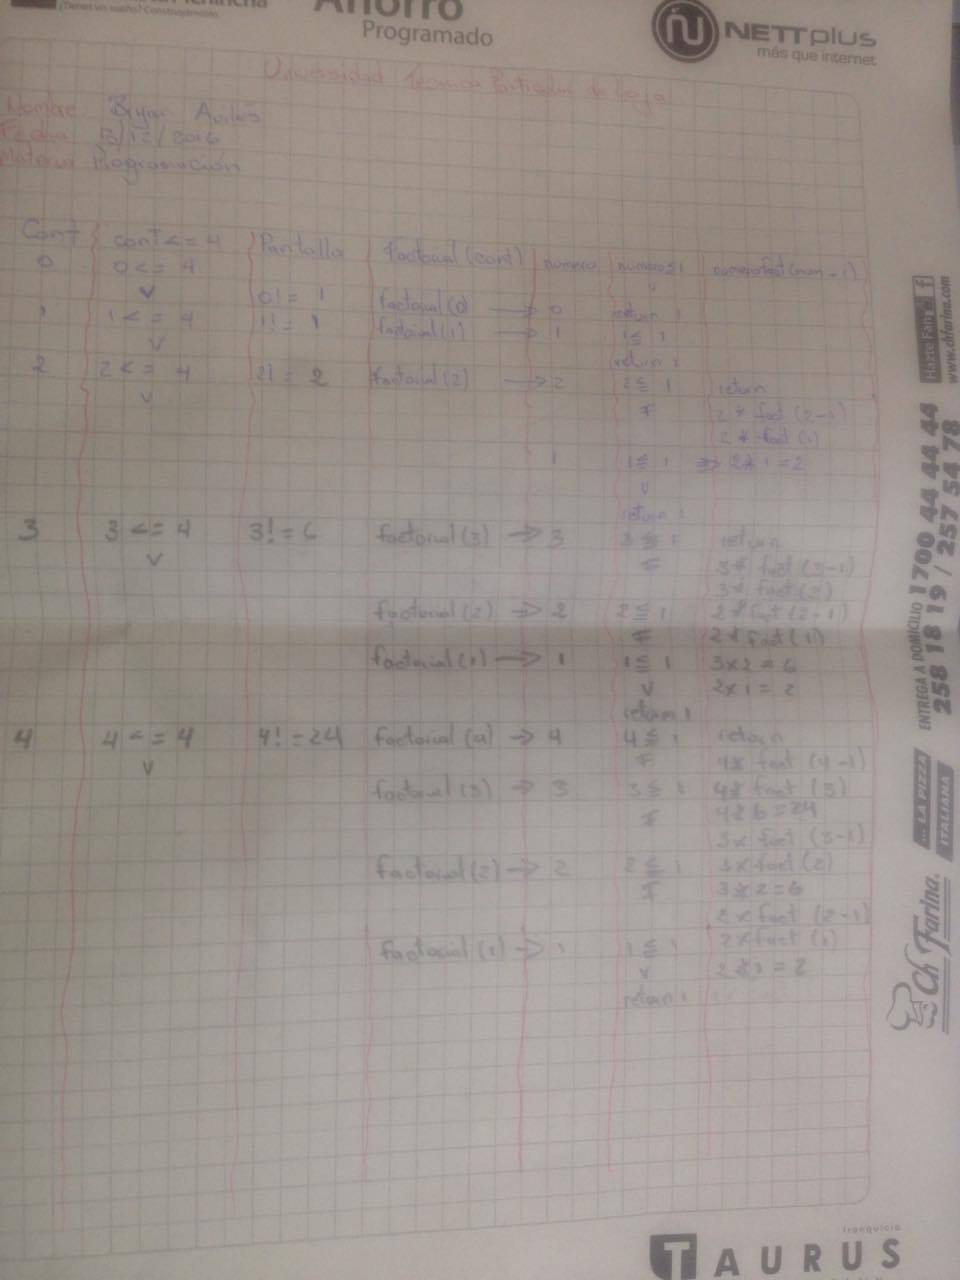 ¿Tienes un sueño? Construyámoslo.
Ahorro
Programado
NETTplus
más que internet
Universidad Técnica Particular de Loja
Nombre Bryan Aviles
Fecha 13/12/2016
Materia Programación
Cont cont<=4 Pantalla factorial(cont) numero numero≤1 numero*fact(num-1)
0 0<=4 v
v 0!=1 factorial(0) → 0 return 1
1 1<=4 1!=1 factorial(1) → 1 1≤1
v return 1
2 2<=4 2!=2 factorial(2) → 2 2≤1 return
v F 2*fact(2-1)
2*fact(1)
1 1≤1 => 2*1=2
v
return 1
3 3<=4 3!=6 factorial(3) → 3 3≤1 return
v F 3*fact(3-1)
3*fact(2)
factorial(2) → 2 2≤1 2*fact(2-1)
F 2*fact(1)
factorial(1) → 1 1≤1 3x2=6
v 2x1=2
return 1
4 4<=4 4!=24 factorial(4) → 4 4≤1 return
v F 4*fact(4-1)
factorial(3) → 3 3≤1 4*fact(3)
F 4*6=24
3*fact(3-1)
factorial(2) → 2 2≤1 3*fact(2)
F 3*2=6
2*fact(2-1)
factorial(1) → 1 1≤1 2*fact(1)
v 2*1=2
return 1
Hazte Fan f
www.chfarina.com
ENTREGA A DOMICILIO 1700 44 44 44
258 18 19 / 257 54 78
... LA PIZZA
ITALIANA
Ch Farina.
franquicia
TAURUS